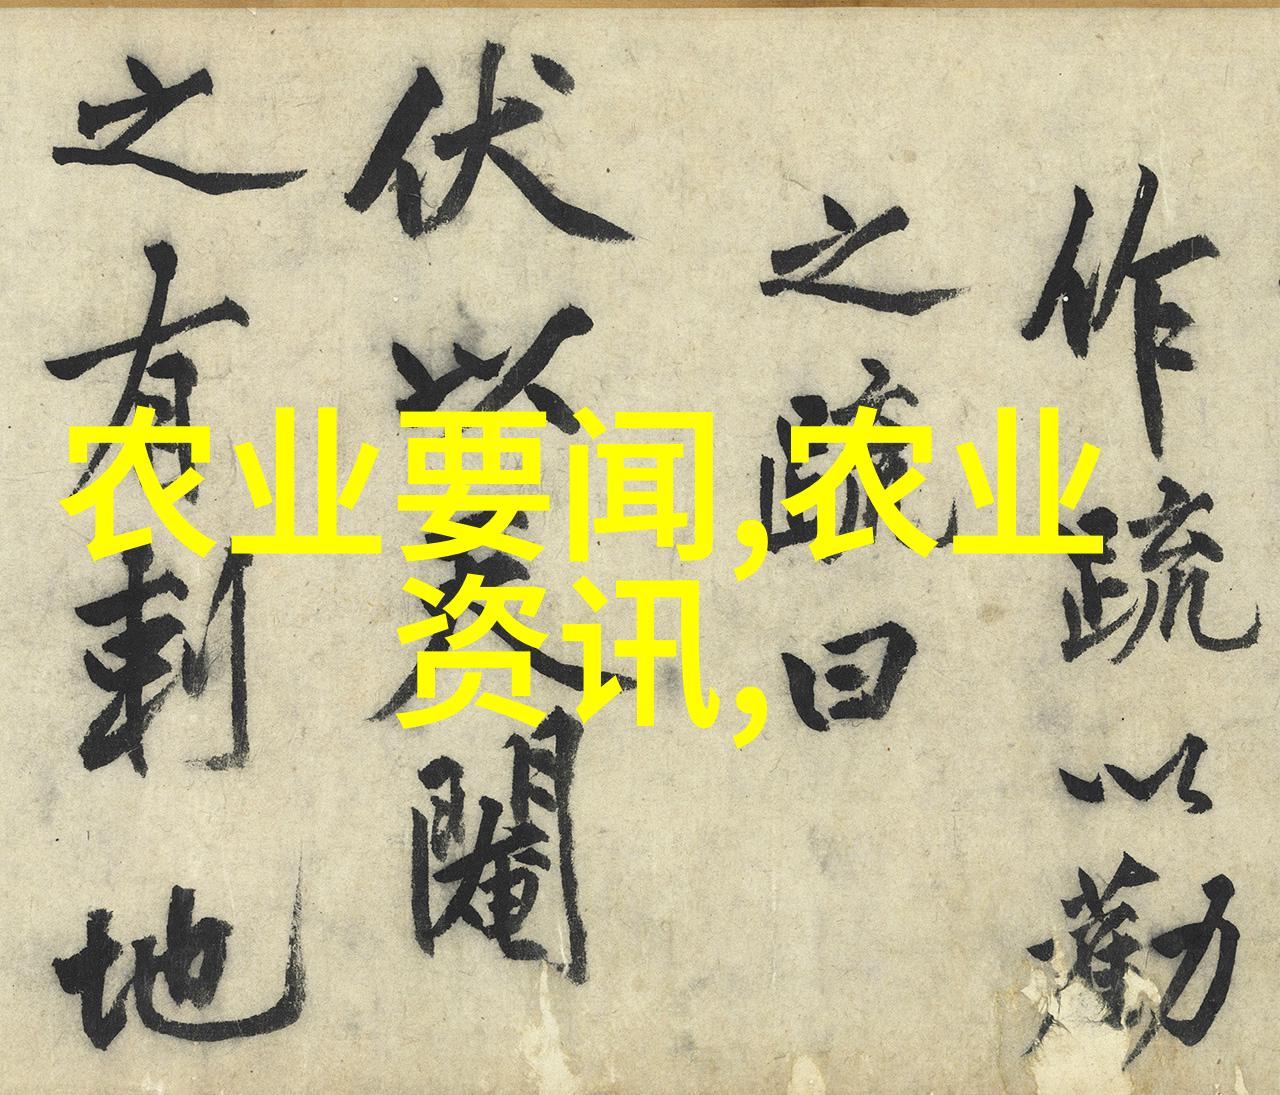 农业要闻,农业
资讯,
作疏以勸
之疏曰
伏以
之有刺地